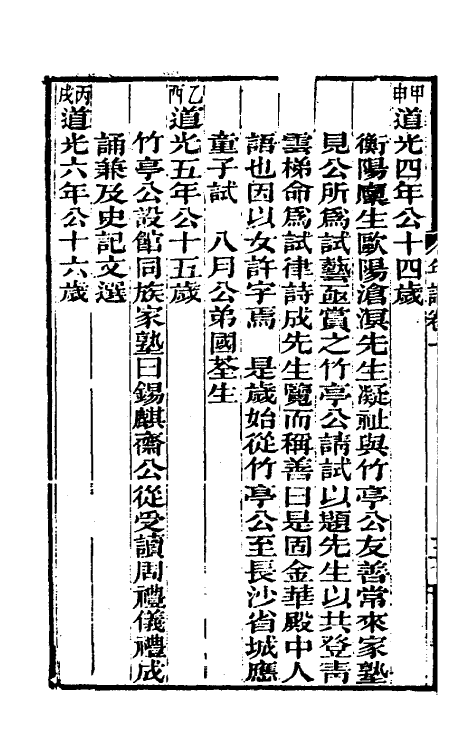 甲申道光四年公十四歲
衡陽廩生歐陽滄溟先生凝祉與竹亭公友善常來家塾
見公所為試藝亟賞之竹亭公請試以題先生以共登青
雲梯命為試律詩成先生覽而稱善曰是固金華殿中人
語也因以女許字焉　是歲始從竹亭公至長沙省城應
童子試　八月公弟國荃生
乙酉道光五年公十五歲
竹亭公設館同族家塾曰錫麒齋公從受讀周禮儀禮成
誦兼及史記文選
丙戌道光六年公十六歲